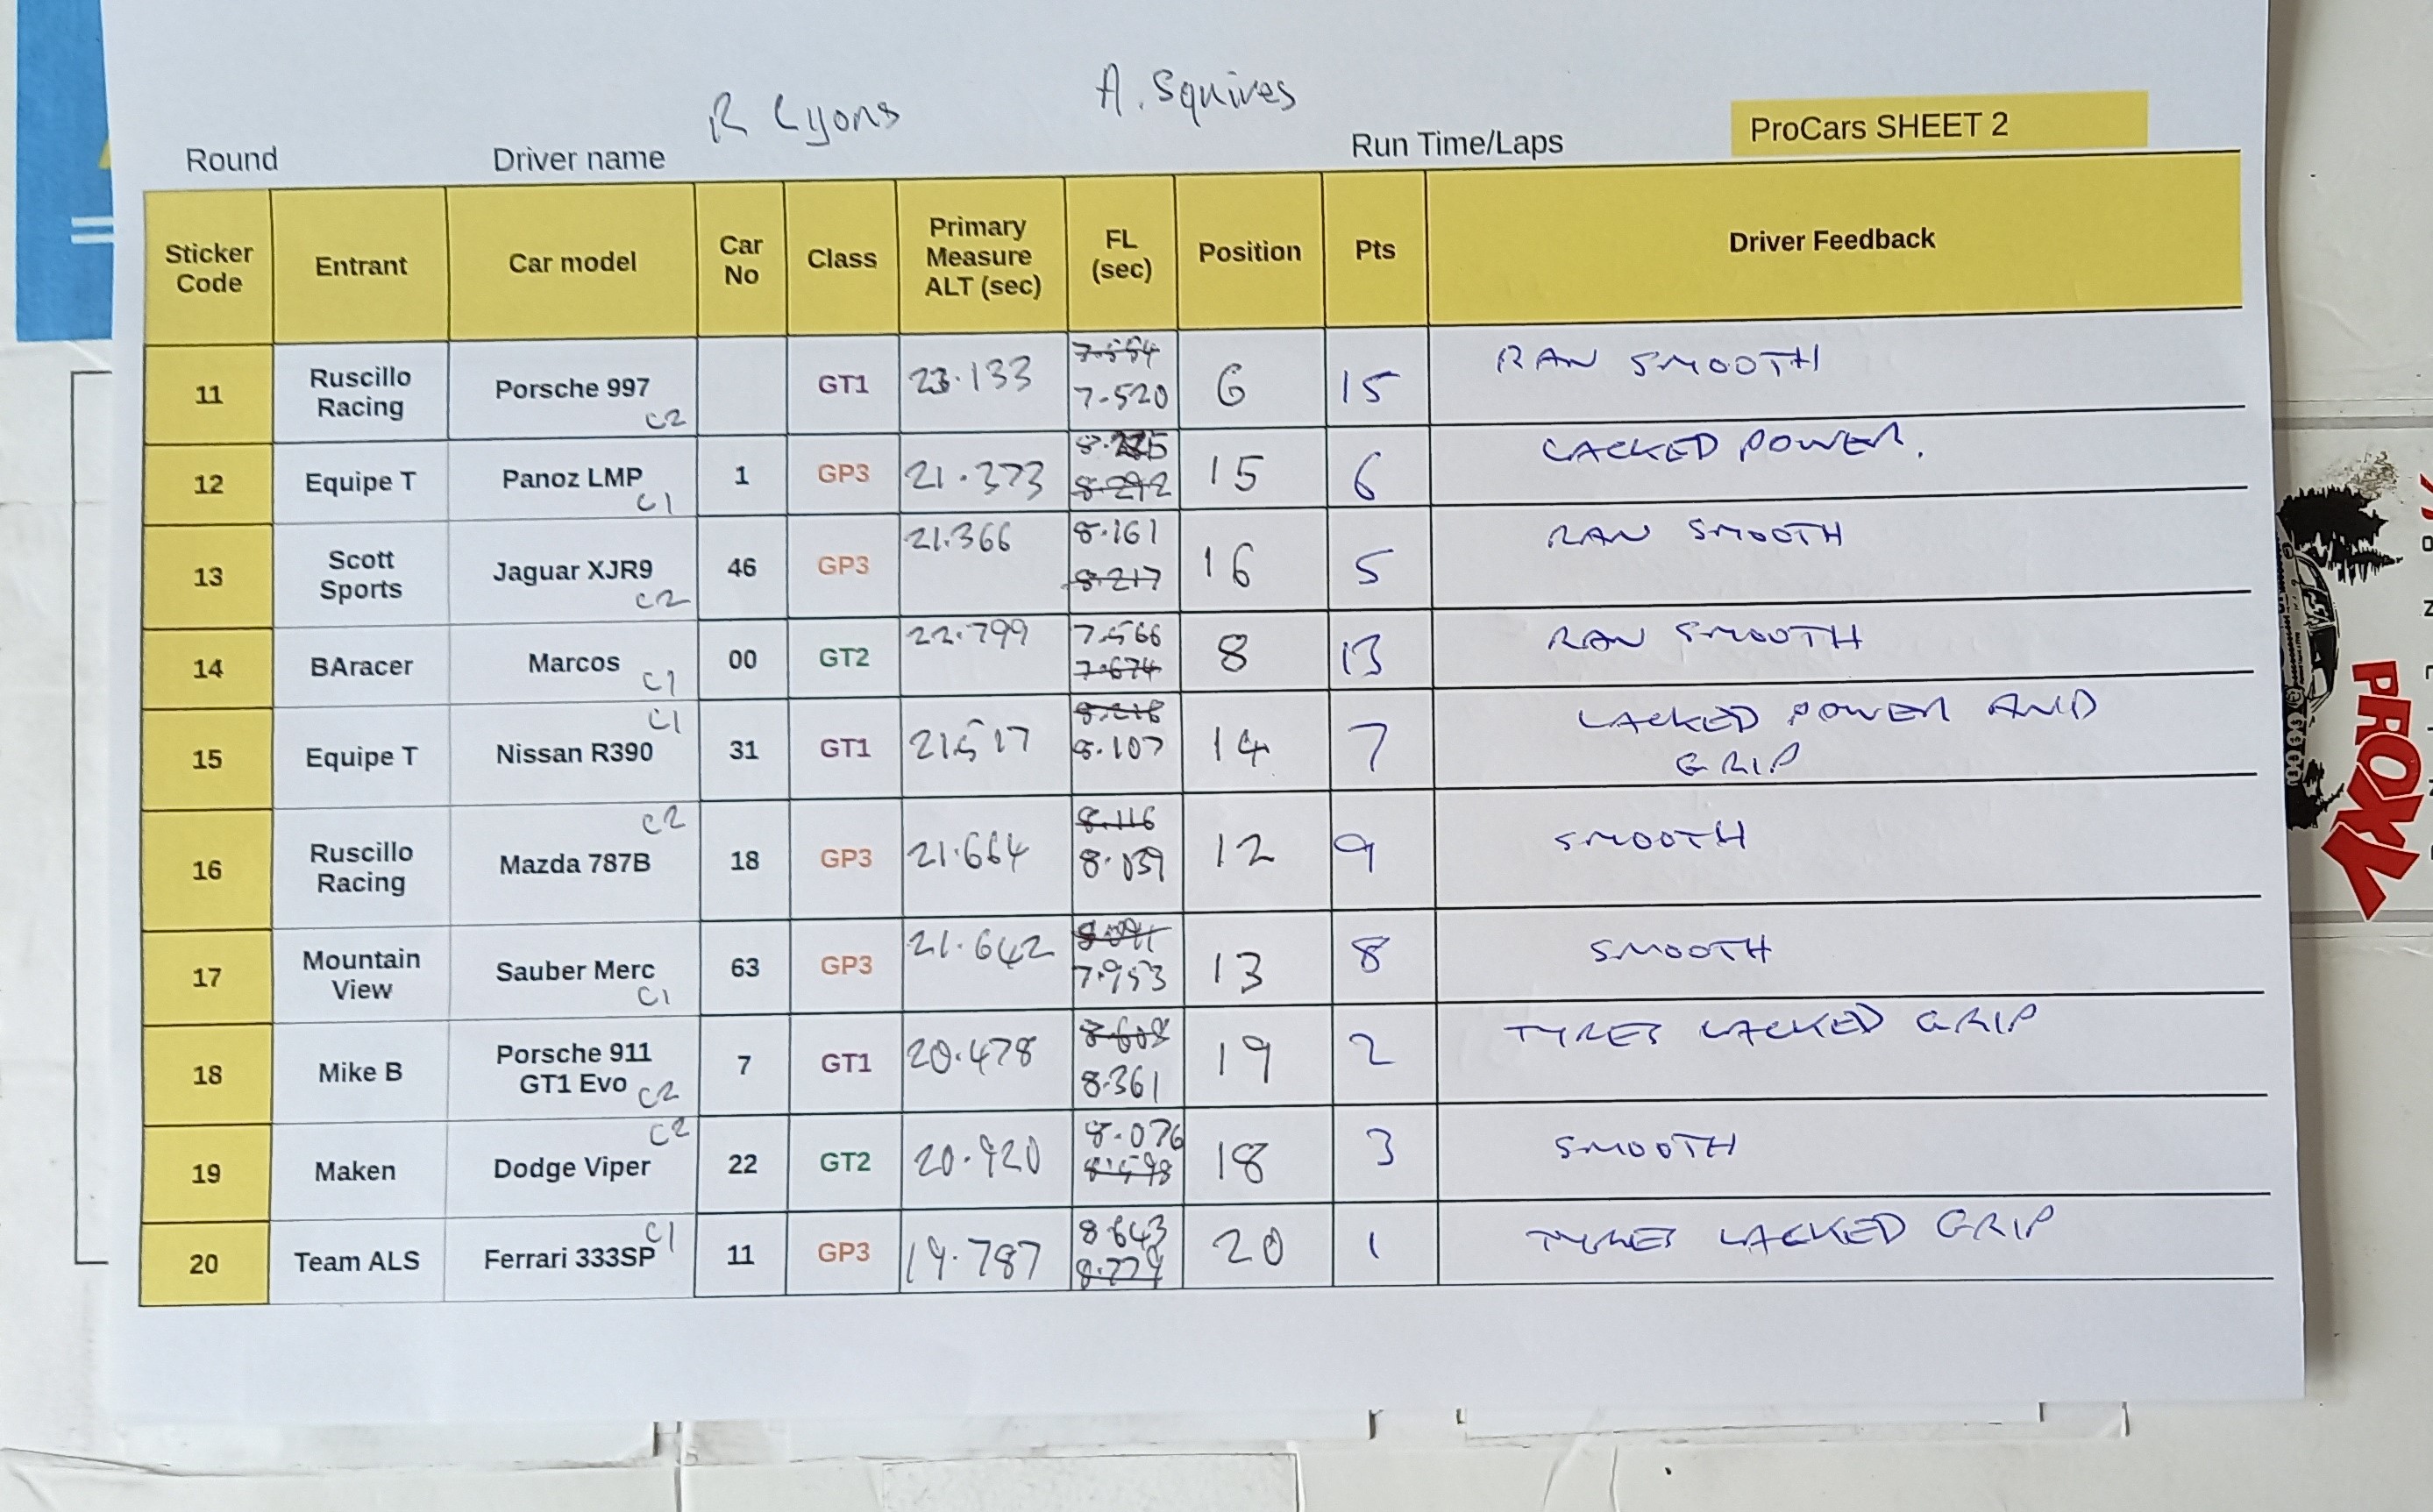 R Lyons A. Squires
Round Driver name Run Time/Laps ProCars SHEET 2
Sticker Code Entrant Car model Car No Class Primary Measure ALT (sec) FL (sec) Position Pts Driver Feedback
11 Ruscillo Racing Porsche 997 C2 GT1 23.133 7.554 7.520 6 15 RAN SMOOTH
12 Equipe T Panoz LMP C1 1 GP3 21.373 8.292 15 6 LACKED POWER.
13 Scott Sports Jaguar XJR9 C2 46 GP3 21.366 8.161 8.217 16 5 RAN SMOOTH
14 BAracer Marcos C1 00 GT2 22.799 7.566 7.674 8 13 RAN SMOOTH
15 Equipe T Nissan R390 C1 31 GT1 21.517 8.218 8.107 14 7 LACKED POWER AND
GRIP
16 Ruscillo Racing Mazda 787B C2 18 GP3 21.664 8.116 8.039 12 9 SMOOTH
17 Mountain View Sauber Merc C1 63 GP3 21.642 7.953 13 8 SMOOTH
18 Mike B Porsche 911 GT1 Evo C2 7 GT1 20.478 8.361 19 2 TYRES LACKED GRIP
19 Maken Dodge Viper C2 22 GT2 20.920 8.076 18 3 SMOOTH
20 Team ALS Ferrari 333SP C1 11 GP3 19.787 8.643 8.779 20 1 TYRES LACKED GRIP
PROXY